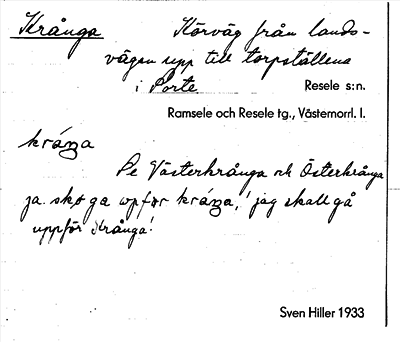 Krånga Körväg från lands-
vägen upp till torpställena
i Porte Resele s:n.
Ramsele och Resele tg., Västernorrl. l.
kráŋa
Pe Västerkrånga ok Österkrånga
ja. ska ga upfør kráŋa,! jag skall gå
uppför Krånga!
Sven Hiller 1933